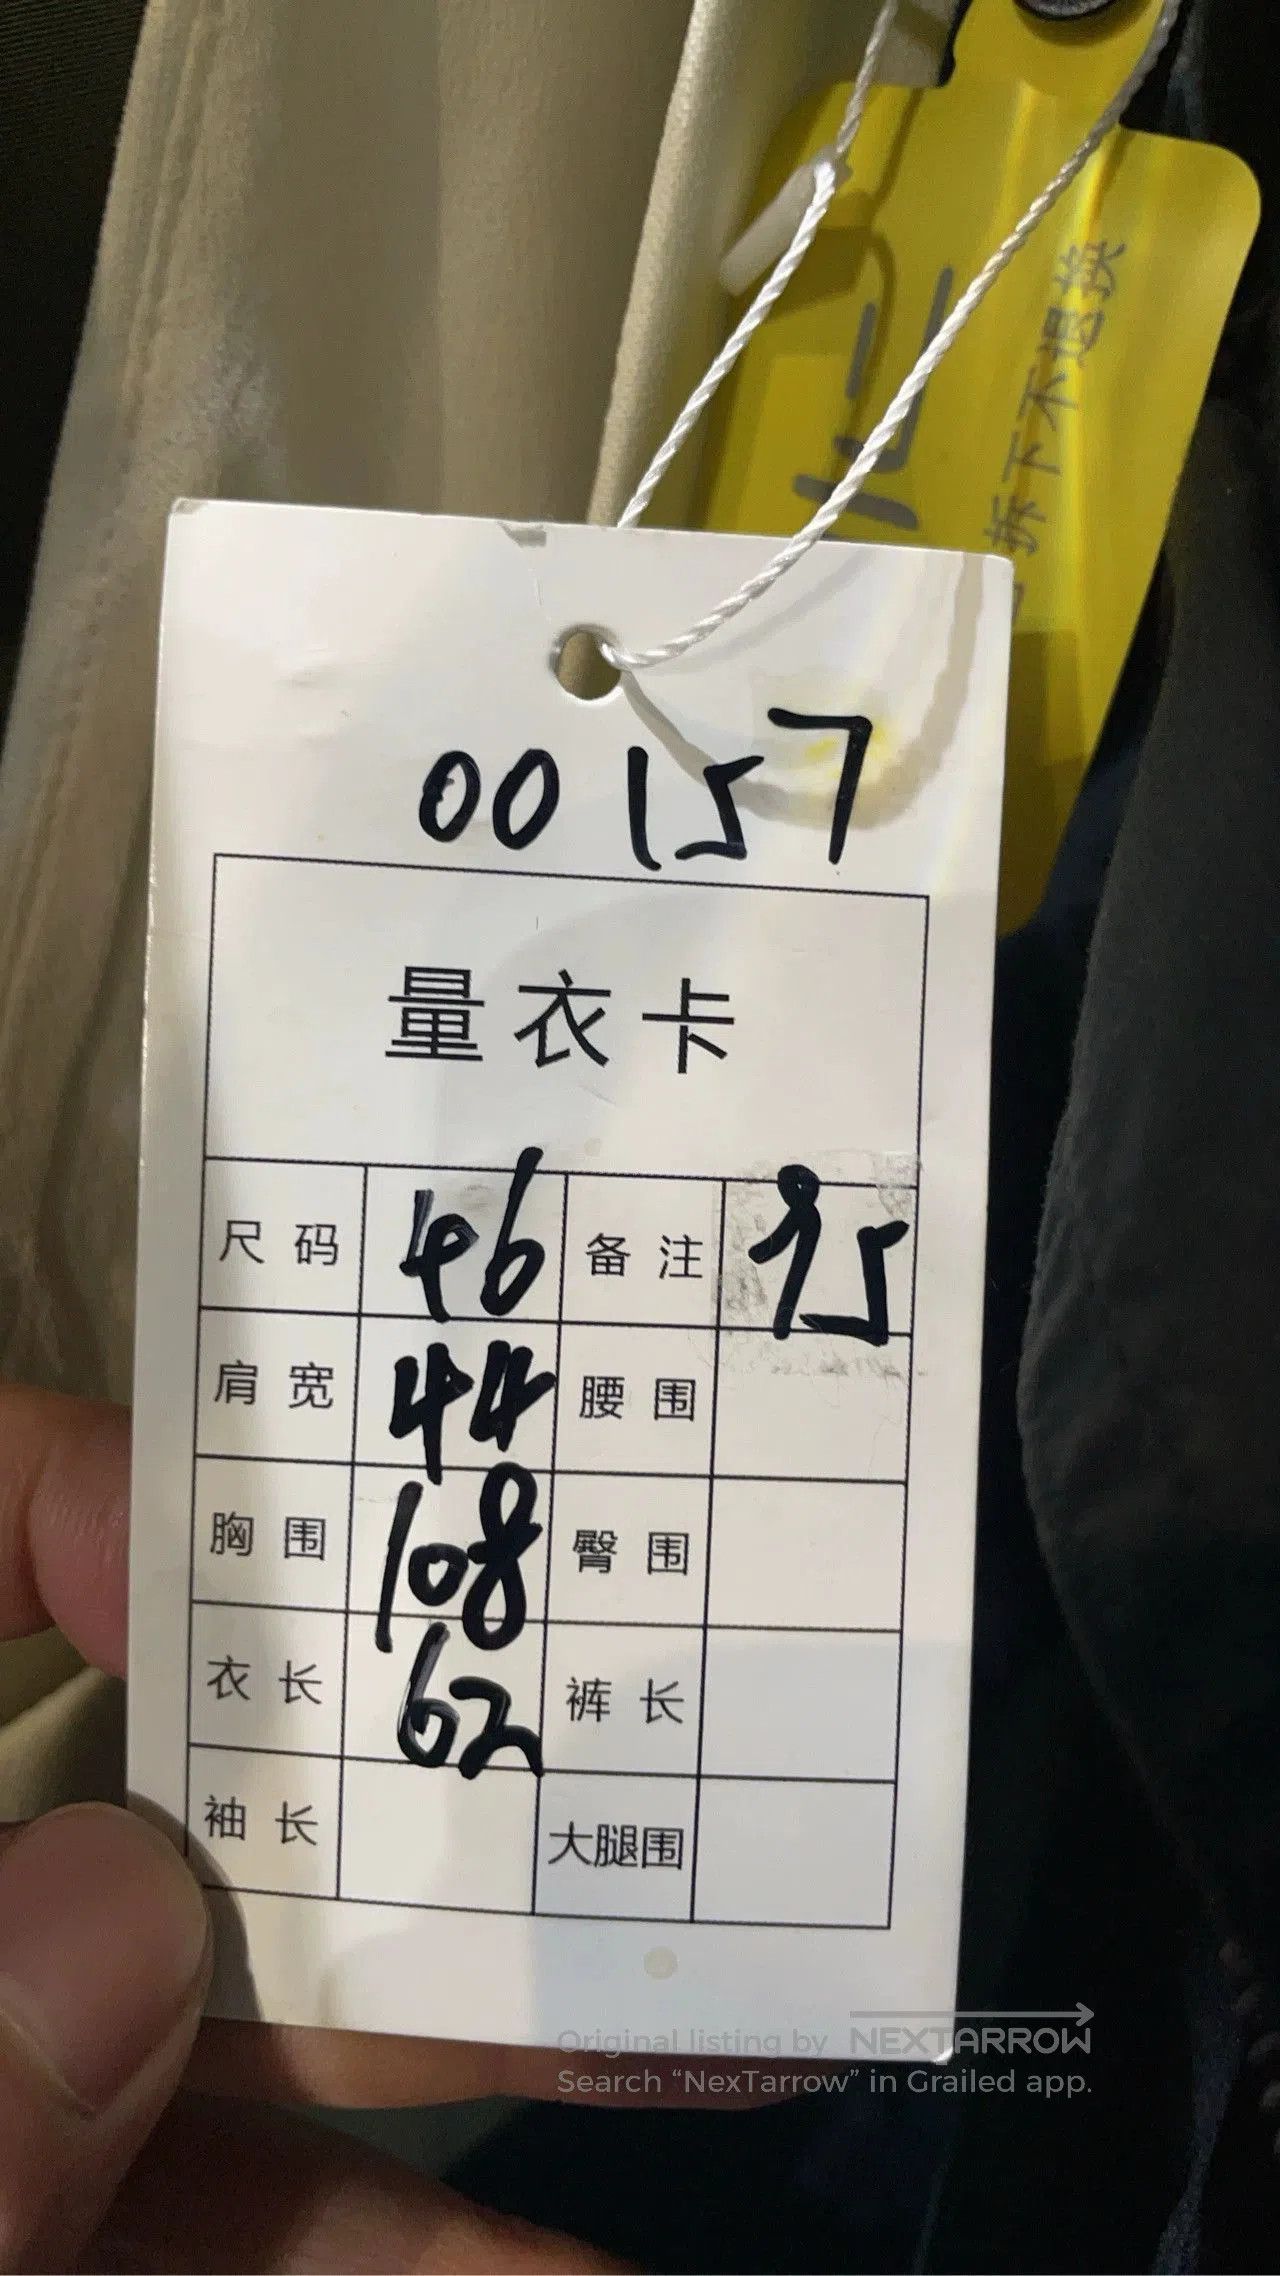 拆下不退换
00157
量衣卡
尺码 46 备注 95
肩宽 44 腰围
胸围 108 臀围
衣长 62 裤长
袖长 大腿围
Original listing by NEXTARROW
Search “NexTarrow” in Grailed app.